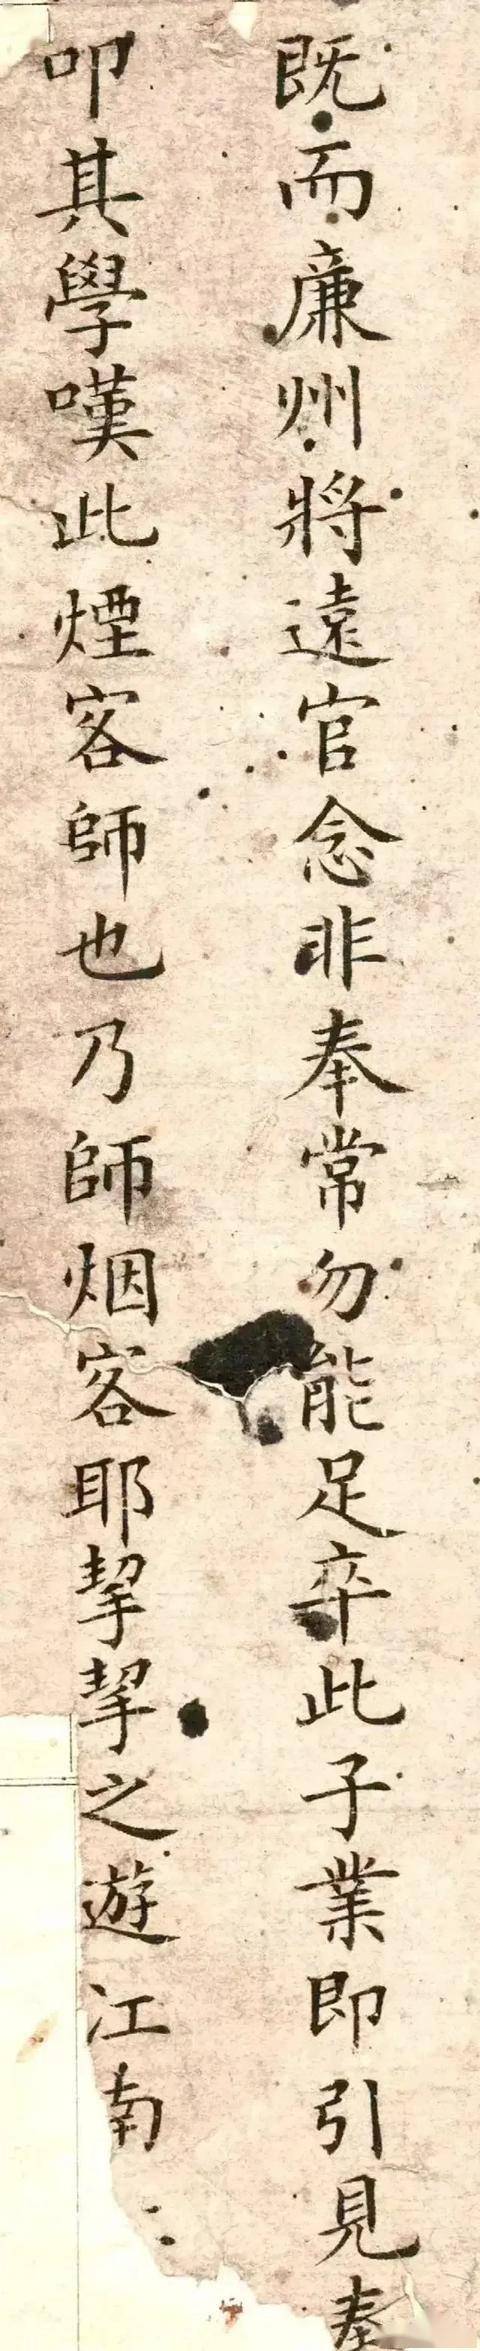 既而廉州將遠官念非奉常勿能足卒此子業即引見奉
叩其學嘆此煙客師也乃師烟客耶挈挈之遊江南